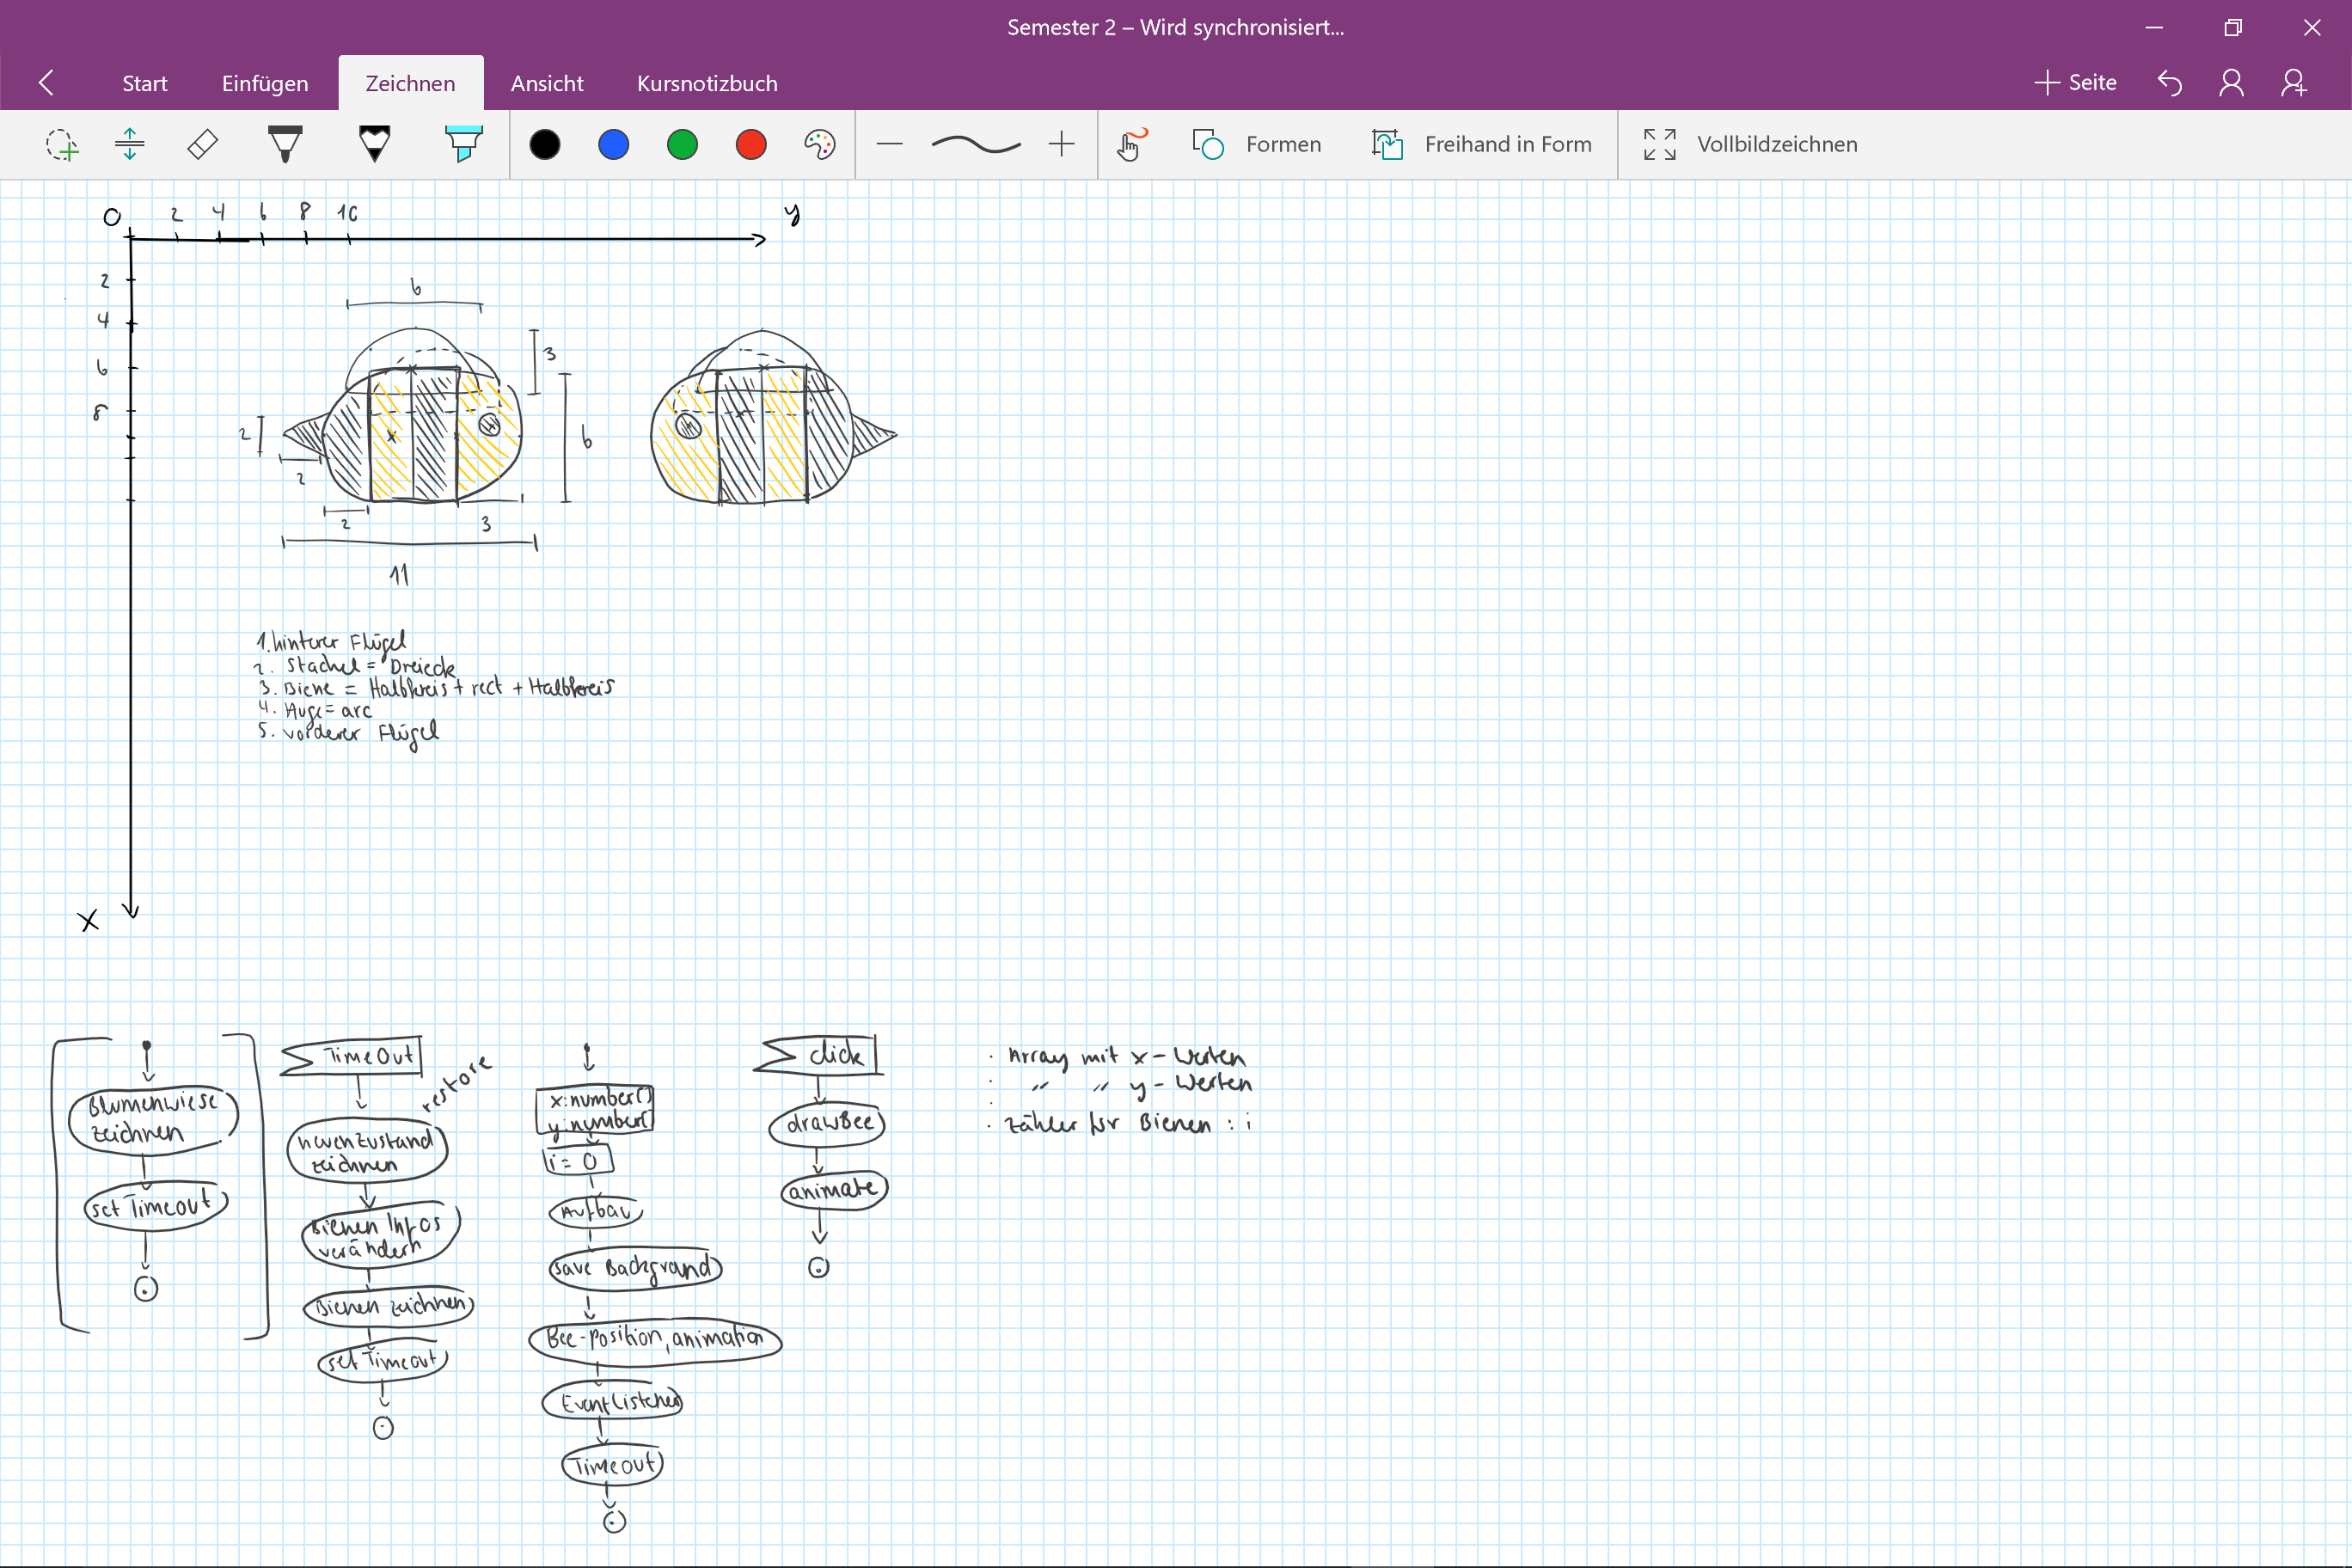 Semester 2 – Wird synchronisiert...
Start Einfügen Zeichnen Ansicht Kursnotizbuch Seite
Formen Freihand in Form Vollbildzeichnen
0 2 4 6 8 10 y
2
4
6
8
x
6
3
6
2
2
2
3
11
1. hinterer Flügel
2. Stachel = Dreieck
3. Biene = Halbkreis + rect + Halbkreis
4. Auge = arc
5. vorderer Flügel
Blumenwiese
zeichnen
set Timeout
TimeOut
restore
neuen Zustand
zeichnen
Bienen Infos
verändern
Bienen zeichnen
set Timeout
x:number[]
y:number[]
i = 0
Aufbau
save Background
Bee-position, animation
EventListener
Timeout
click
drawBee
animate
· Array mit x-Werten
· " " y-Werten
· Zähler für Bienen : i